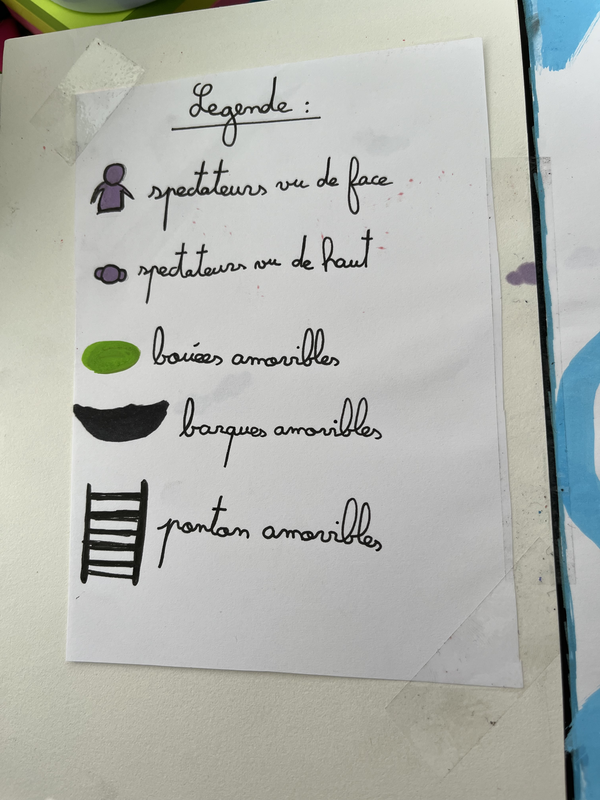 Legende :
spectateurs vu de face
spectateurs vu de haut
bouées amovibles
barques amovibles
ponton amovibles